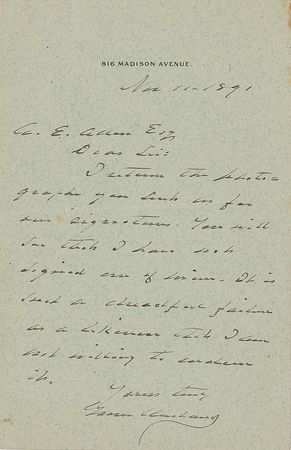 816 MADISON AVENUE.
Nov 11. 1891
A. E. Allen Esq
Dear Sir:
I return the photo-
graphs you send us for
our signatures. You will
see that I have not
signed one of mine. It is
such a dreadful failure
as a likeness that I am
not willing to endorse
it.
Yours truly